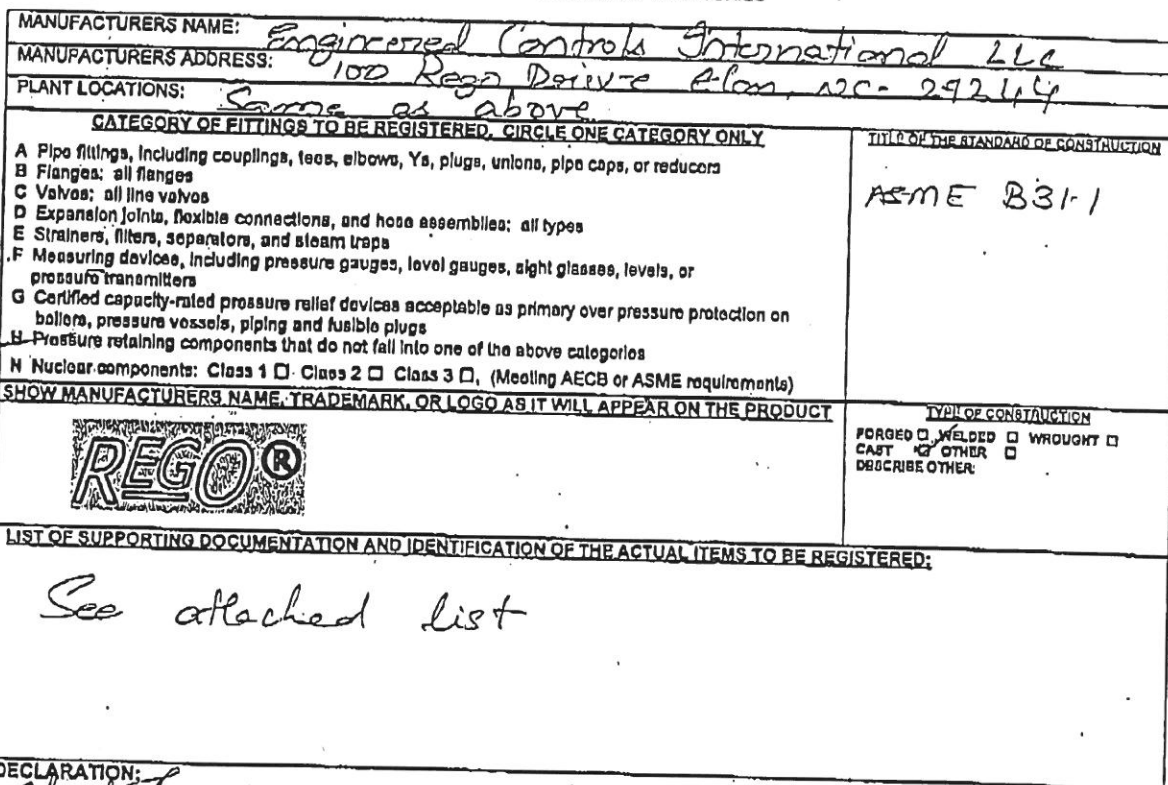 MANUFACTURERS NAME: Engineered Controls International LLC
MANUFACTURERS ADDRESS: 100 Rego Drive Elon, NC- 29244
PLANT LOCATIONS: Same as above
CATEGORY OF FITTINGS TO BE REGISTERED, CIRCLE ONE CATEGORY ONLY
A Pipe fittings, including couplings, tees, elbows, Ys, plugs, unions, pipe caps, or reducers
B Flanges; all flanges
C Valves; all line valves
D Expansion joints, flexible connections, and hose assemblies; all types
E Strainers, filters, separators, and steam traps
F Measuring devices, including pressure gauges, level gauges, sight glasses, levels, or
pressure transmitters
G Certified capacity-rated pressure relief devices acceptable as primary over pressure protection on
boilers, pressure vessels, piping and fusible plugs
H Pressure retaining components that do not fall into one of the above categories
N Nuclear components: Class 1 ☐ Class 2 ☐ Class 3 ☐, (Meeting AECB or ASME requirements)
TITLE OF THE STANDARD OF CONSTRUCTION
ASME B31.1
SHOW MANUFACTURERS NAME, TRADEMARK, OR LOGO AS IT WILL APPEAR ON THE PRODUCT
REGO®
TYPE OF CONSTRUCTION
FORGED ☐ WELDED ☐ WROUGHT ☐
CAST ☑ OTHER ☐
DESCRIBE OTHER:
LIST OF SUPPORTING DOCUMENTATION AND IDENTIFICATION OF THE ACTUAL ITEMS TO BE REGISTERED:
See attached list
DECLARATION: